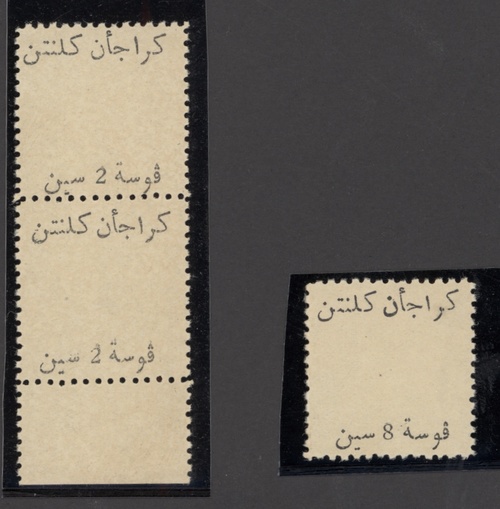 كراجأن كلنتن
ڤوسة 2 سين
كراجأن كلنتن
ڤوسة 2 سين
كراجأن كلنتن
ڤوسة 8 سين